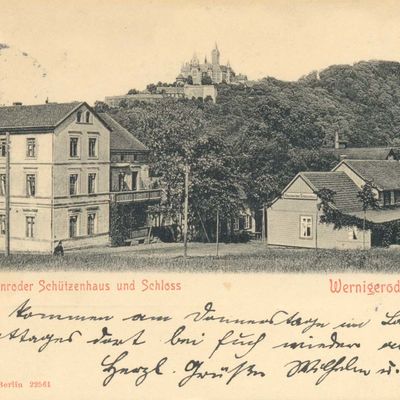 nroder Schützenhaus und Schloss
Wernigerod
kommen am Donnerstage im La
ttages dort bei Euch wieder a
Herzl. Grüße Wilhelm u.
Berlin 22561